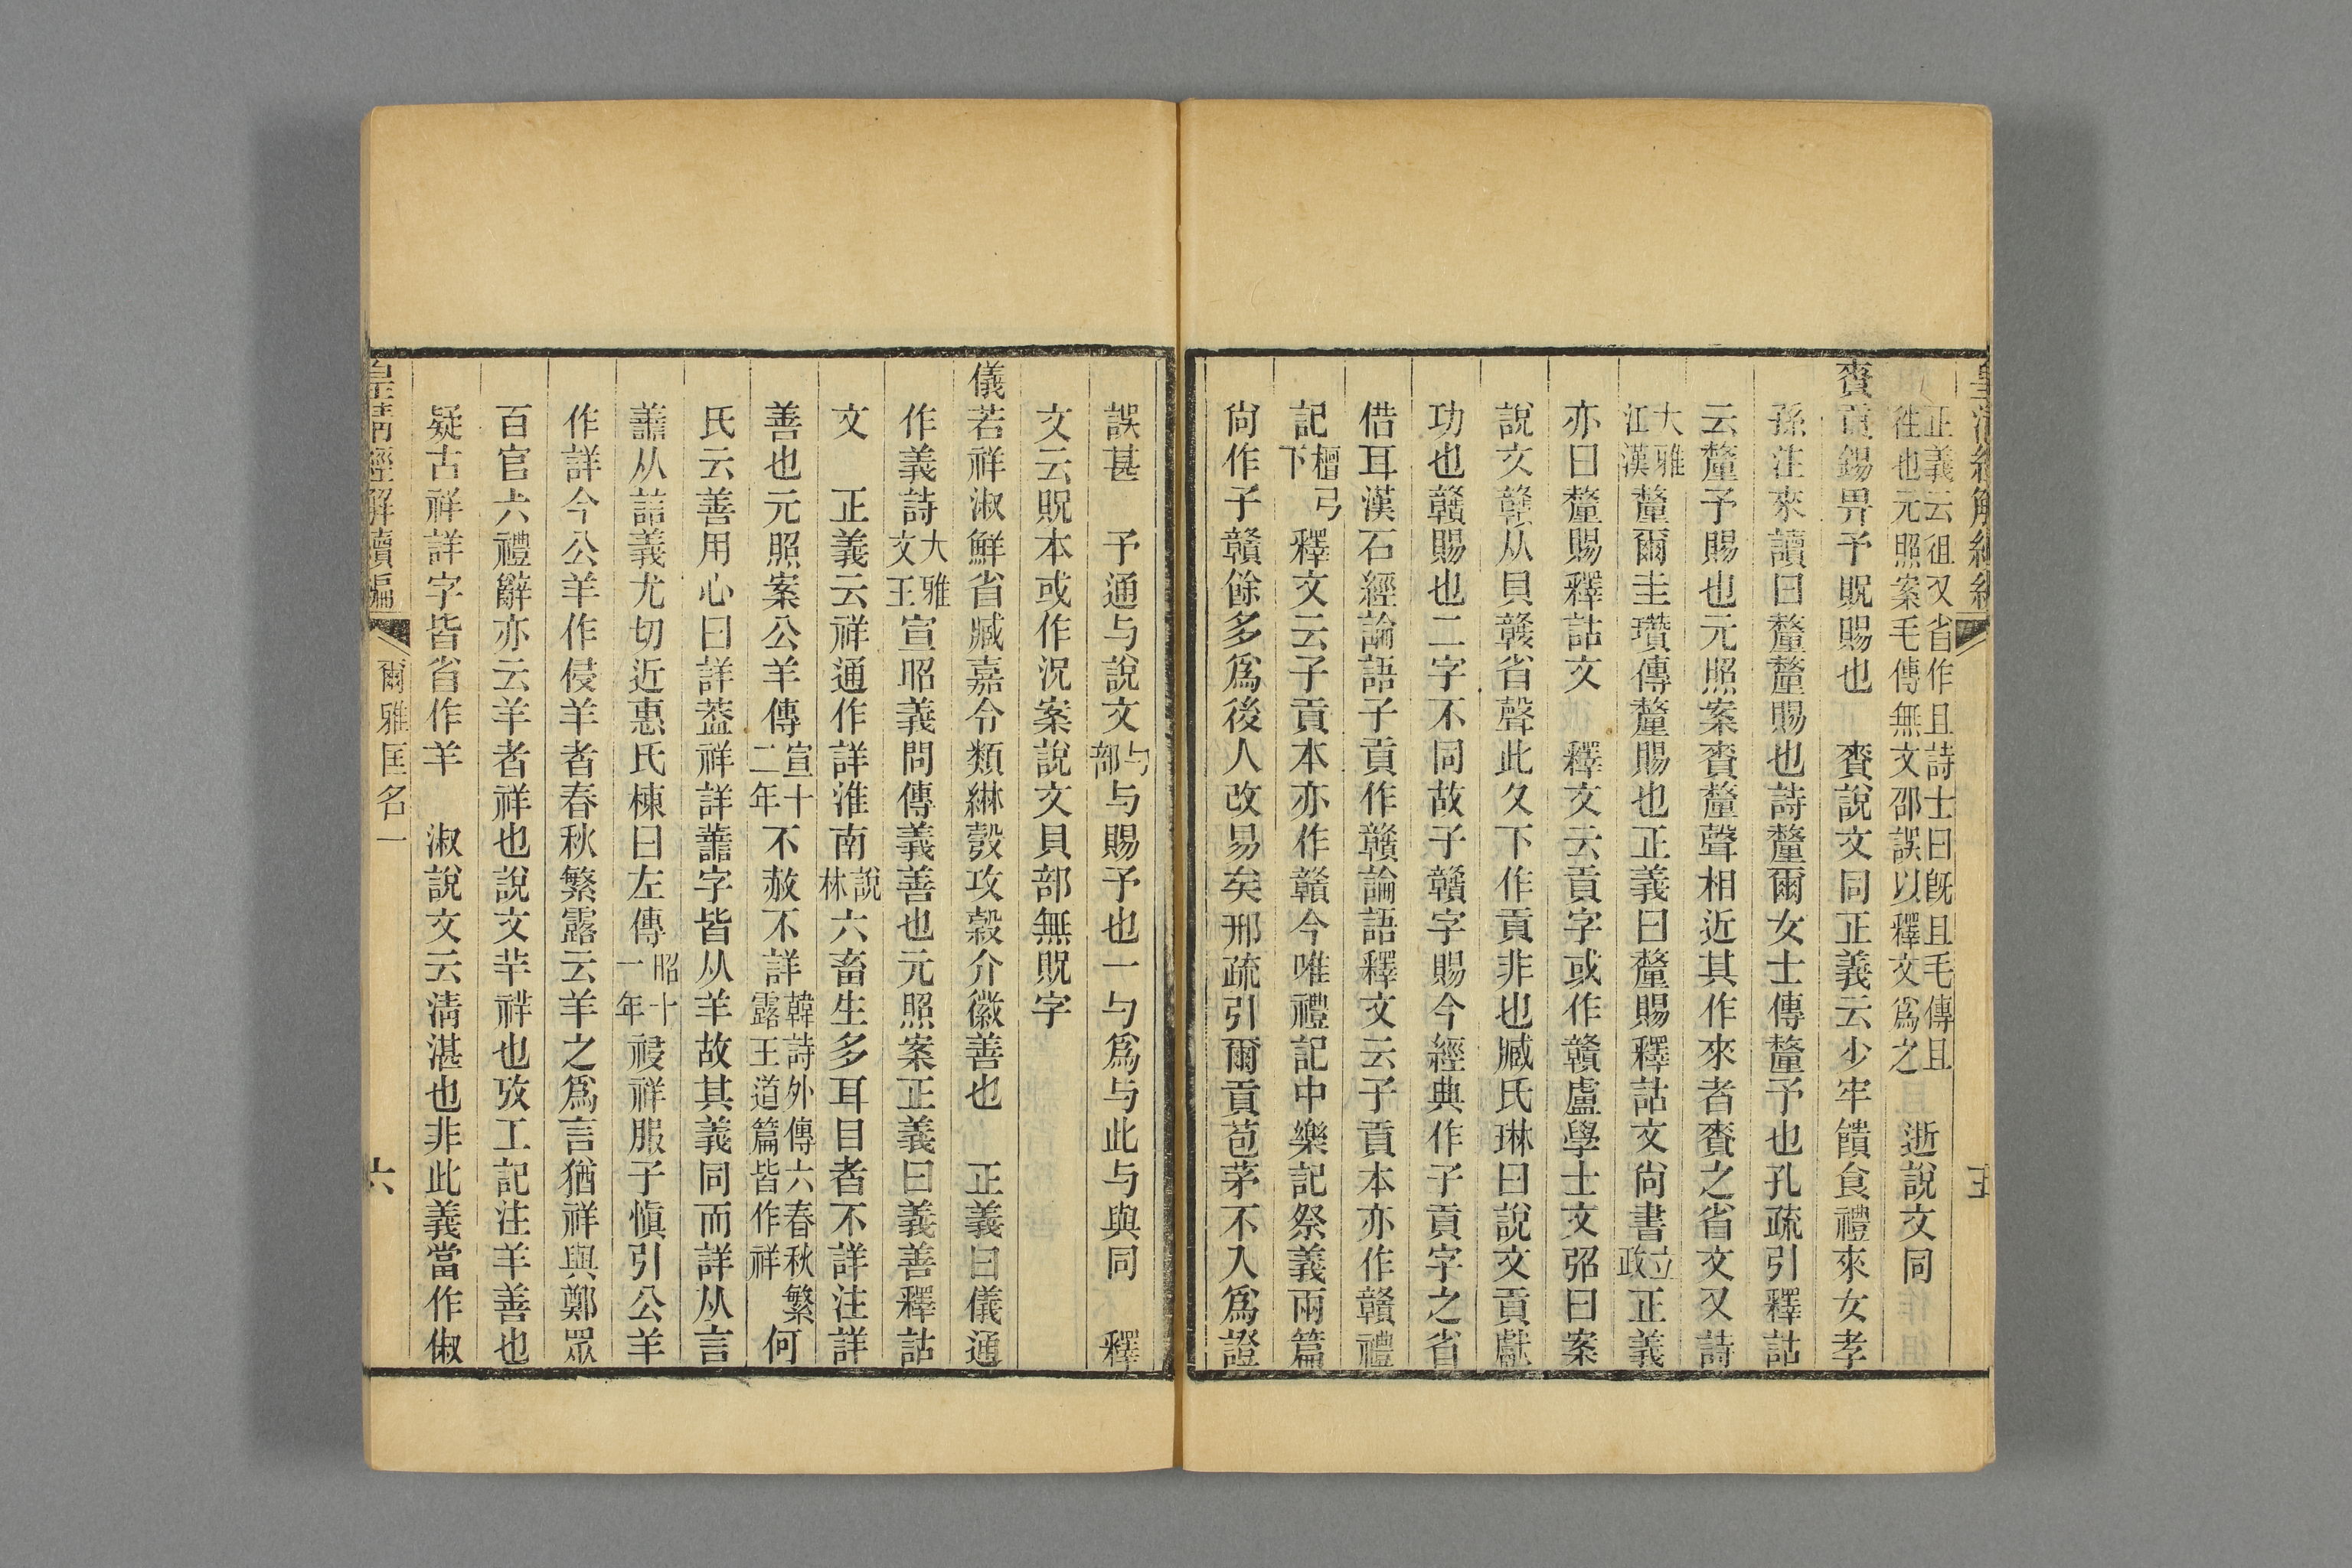 正義云徂又省作且詩士曰旣且毛傳且
徃也元照案毛傳無文邵誤以釋文爲之　逝說文同
賚貢錫畀予貺賜也　賚說文同正義云少牢饋食禮來女孝
孫注來讀曰釐釐賜也詩釐爾女士傳釐予也孔疏引釋詁
云釐予賜也元照案賚釐聲相近其作來者賚之省文又詩
大雅江漢釐爾圭瓚傳釐賜也正義曰釐賜釋詁文尙書立政正義
亦曰釐賜釋詁文　釋文云貢字或作贛盧學士文弨曰案
說文贛从貝竷省聲此久下作貢非也臧氏琳曰說文貢獻
功也贛賜也二字不同故子贛字賜今經典作子貢字之省
借耳漢石經論語子貢作贛論語釋文云子貢本亦作贛禮
記檀弓下釋文云子貢本亦作贛今唯禮記中樂記祭義兩篇
尙作子贛餘多爲後人改易矣邢疏引爾貢苞茅不入爲證
誤甚　予通与說文与部与賜予也一勺爲与此与與同　釋
文云貺本或作況案說文貝部無貺字
儀若祥淑鮮省臧嘉令類綝彀攻穀介徽善也　正義曰儀通
作義詩大雅文王宣昭義問傳義善也元照案正義曰義善釋詁
文　正義云祥通作詳淮南說林六畜生多耳目者不詳注詳
善也元照案公羊傳宣十二年不赦不詳韓詩外傳六春秋繁露王道篇皆作祥何
氏云善用心曰詳葢祥詳譱字皆从羊故其義同而詳从言
譱从誩義尤切近惠氏棟曰左傳昭十一年祲祥服子愼引公羊
作詳今公羊作侵羊者春秋繁露云羊之爲言猶祥與鄭眾
百官六禮辭亦云羊者祥也說文羋祥也攷工記注羊善也
疑古祥詳字皆省作羊　淑說文云淸湛也非此義當作俶
皇淸經解續編　爾雅匡名一　六